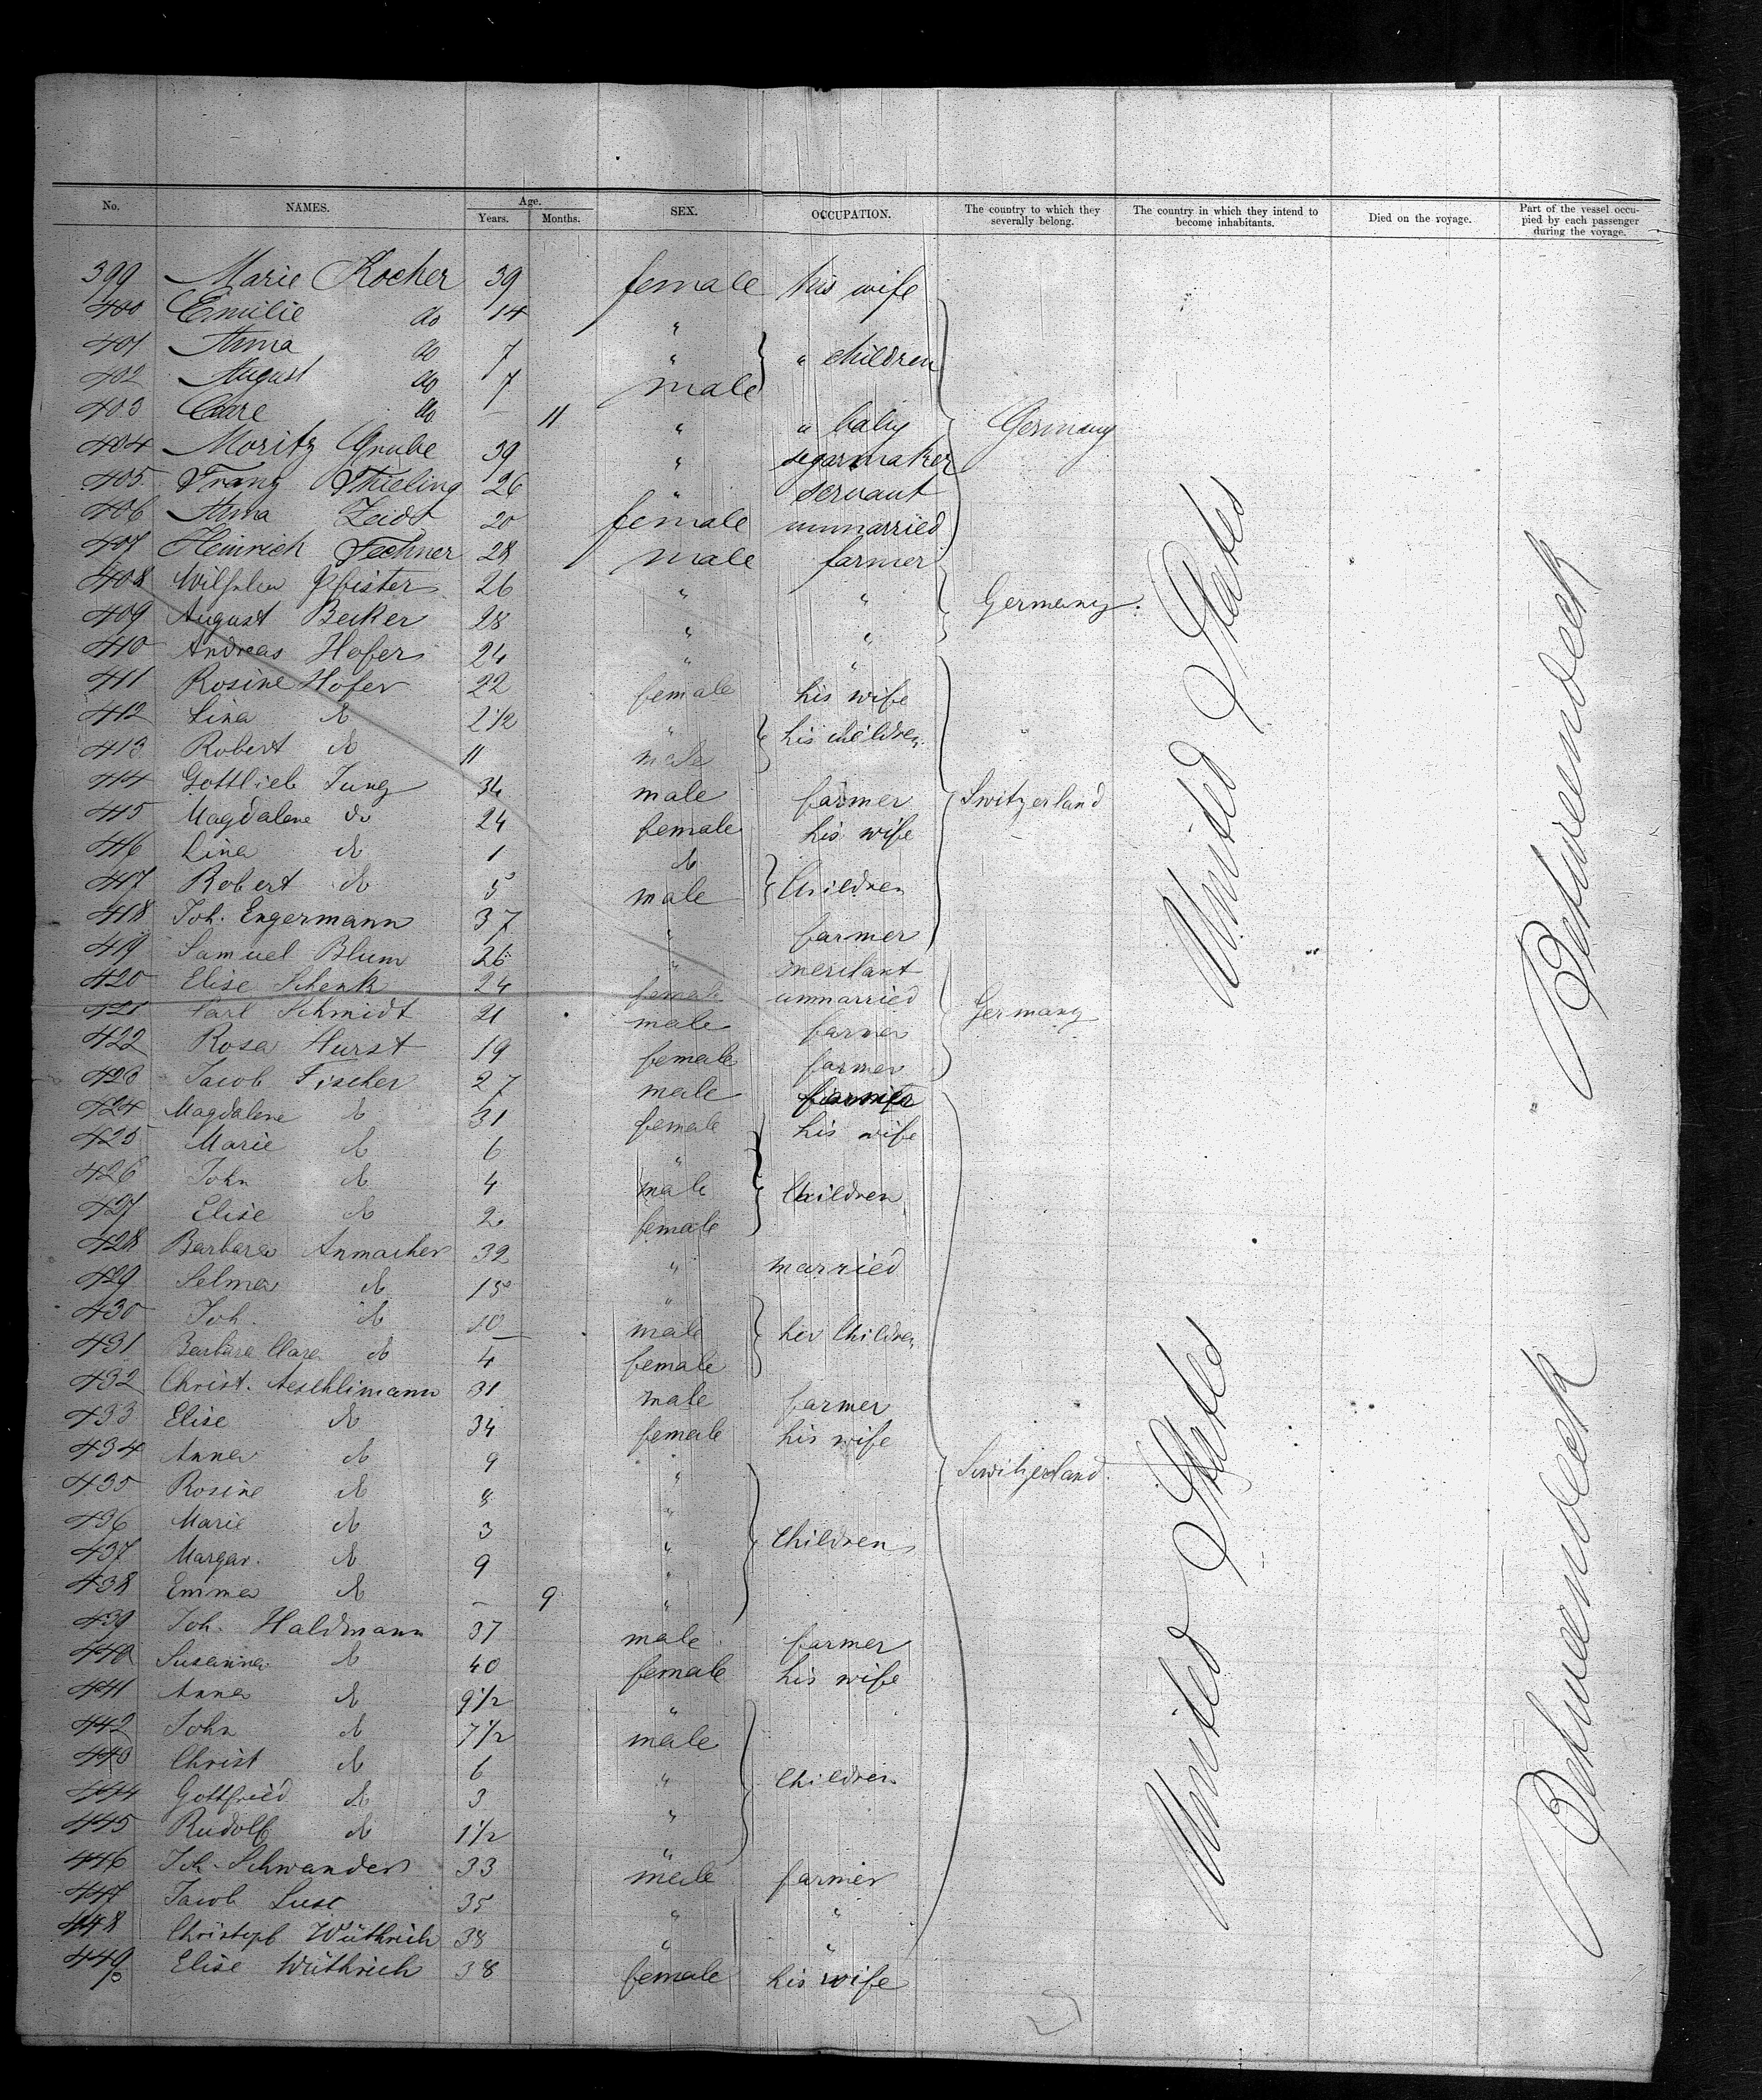 No. NAMES. Age. Years. Months. SEX. OCCUPATION. The country to which they severally belong. The country in which they intend to become inhabitants. Died on the voyage. Part of the vessel occupied by each passenger during the voyage.
399 Marie Kocher 39 female his wife
400 Emilie do 14 "
401 Anna do 7 " " children
402 August do 7 male
403 do - 11 " " baby Germany
404 Moritz Grube 39 " segarmaker
405 Franz Thieling 26 " servant
406 Anna Zeidt 20 female unmarried
407 Heinrich Fechner 28 male farmer
408 Wilhelm Pfister 26 " " Germany.
409 August Becker 28 " "
410 Andreas Hofer 24 " "
411 Rosine Hofer 22 female his wife
412 Lina do 2 1/2 " his children
413 Robert do 11 male
414 Gottlieb Jung 34 male farmer Switzerland
415 Magdalene do 24 female his wife
416 Lina do 1 do
417 Robert do 5 male Children
418 Joh. Engermann 37 " farmer
419 Samuel Blum 26 " merchant
420 Elise Schenk 24 female unmarried
421 Carl Schmidt 21 male farmer Germany
422 Rosa Hurst 19 female farmer
423 Jacob Fischer 27 male farmer
424 Magdalene do 31 female his wife
425 Marie do 6 "
426 John do 4 male Children
427 Elise do 2 female
428 Barbara Anmacher 32 " married
429 Selma do 15 "
430 Joh. do 10 male her Children
431 Barbara Clara do 4 female
432 Christ. Aeschlimann 31 male farmer
433 Elise do 34 female his wife
434 Anna do 9 " Switzerland.
435 Rosine do 8 "
436 Marie do 3 " Children
437 Margar. do 9 "
438 Emma do - 9 "
439 Joh. Haldmann 37 male farmer
440 Susanna do 40 female his wife
441 Anna do 9 1/2 "
442 John do 7 1/2 male
443 Christ do 6 " Children
444 Gottfried do 3 "
445 Rudolf do 1 1/2 "
446 Joh. Schwander 33 male farmer
447 Jacob 35 " "
448 Christoph Wüthrich 38 " "
449 Elise Wüthrich 38 female his wife
United States
Betweendeck
United States
Betweendeck